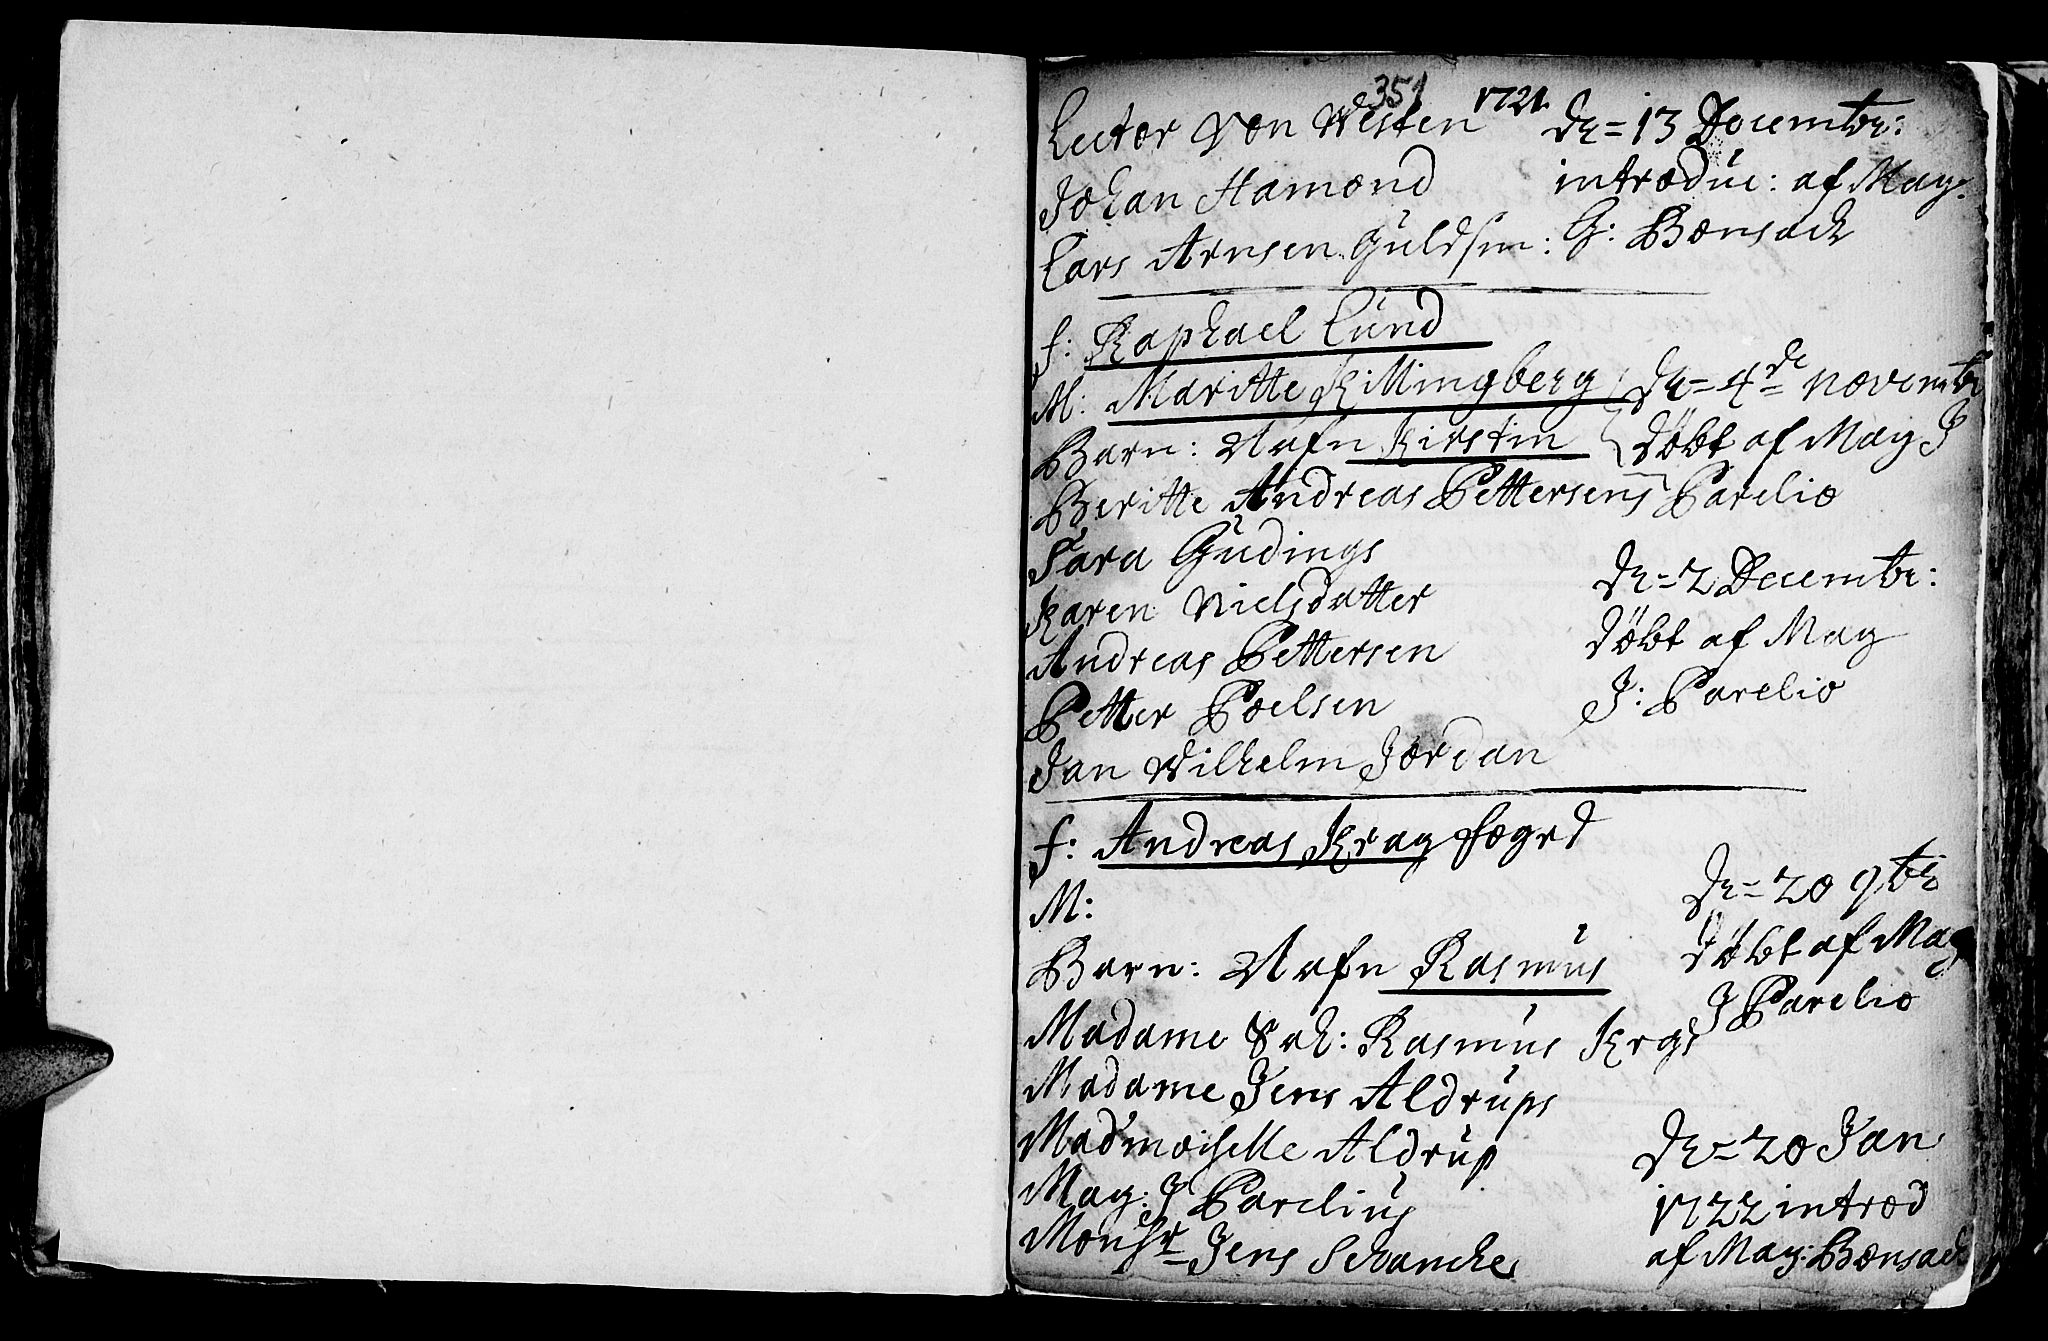 351 1721
Lector Von Westen
Johan Hamond
Lars Arnsen Guldsm:
d = 13 Decembr:
introduc: af Mag:
G: Bonsack
f: Raphael Lund
M: Maritte Killingberg
Barn: Nafn Kirstin
d = 4de novembr
døbt af Mag J
Parelio
Beritte Andreas Pettersens
Sara Gudings
Karen Nielsdatter
Andreas Pettersen
Petter Poelsen
Jan Wilhelm Jordan
d = 2 Decembr:
døbt af Mag
J: Parelio
f: Andreas Krag foged
M:
Barn: Nafn Rasmus
d = 20 9br
døbt af Mag
J Parelio
Madame Sal: Rasmus Krags
Madame Jens Aldrups
Mad'moiselle Aldrup
Mag: J Parelius
Monsr Jens Schancke
d = 20 Jan
1722 introd
af Mag: Bonsack